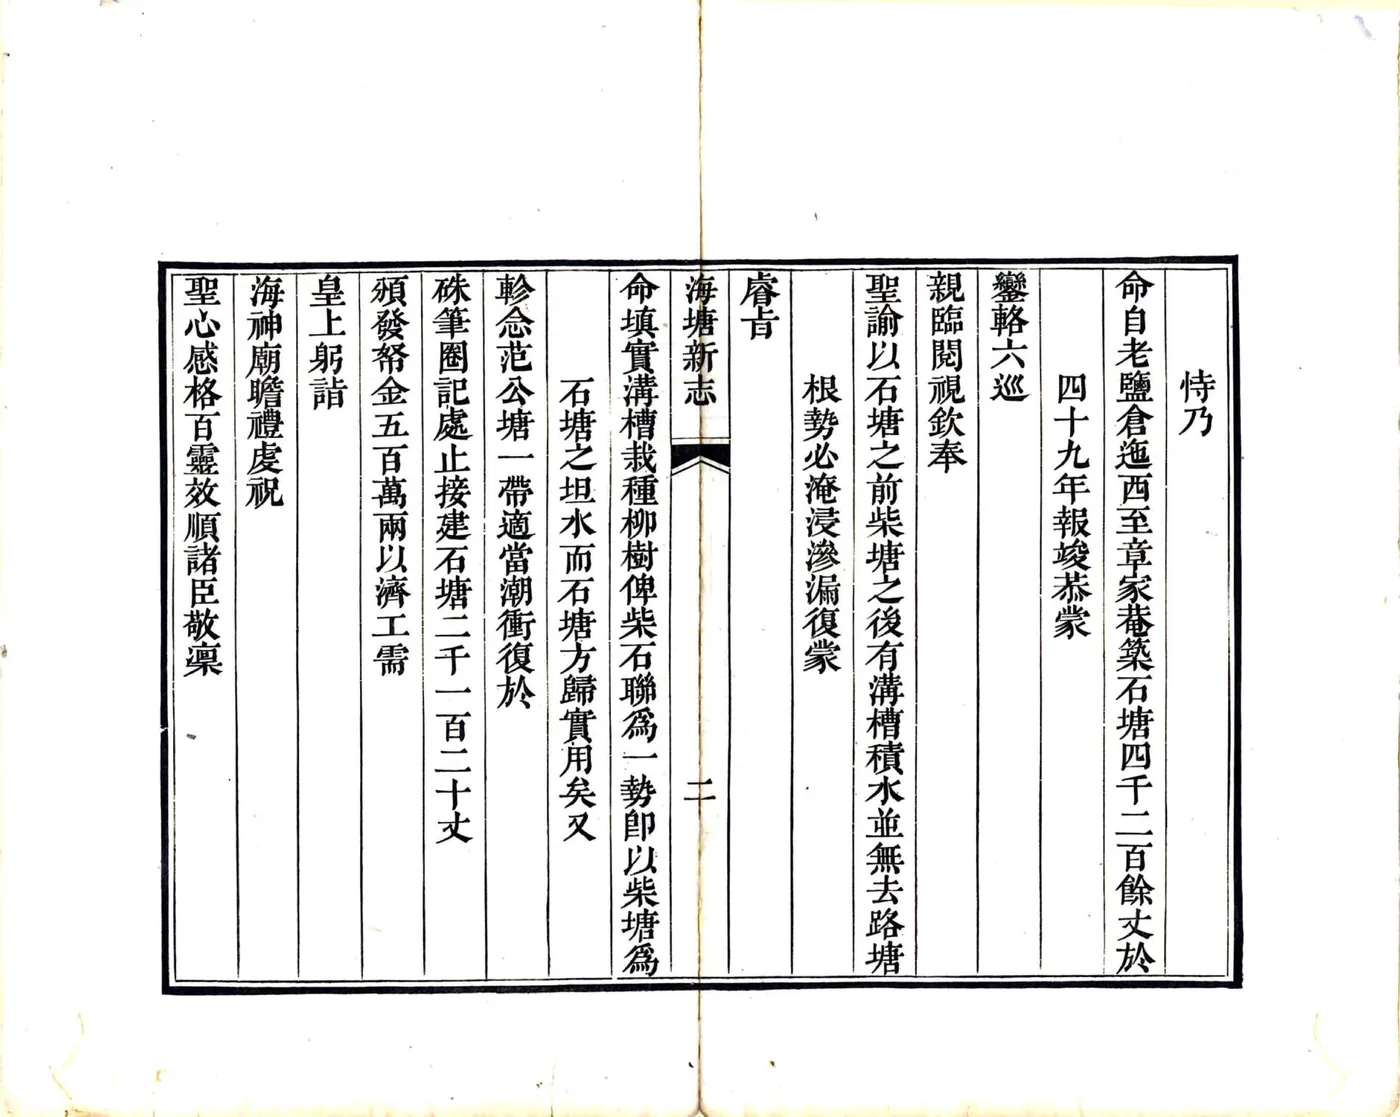 恃乃
命自老鹽倉迤西至章家菴築石塘四千二百餘丈於
四十九年報竣恭蒙
鑾輅六巡
親臨閱視欽奉
聖諭以石塘之前柴塘之後有溝槽積水並無去路塘
根勢必淹浸滲漏復蒙
睿旨
海塘新志
二
命填實溝槽栽種柳樹俾柴石聯為一勢卽以柴塘為
石塘之坦水而石塘方歸實用矣又
軫念范公塘一帶適當潮衝復於
硃筆圈記處止接建石塘二千一百二十丈
頒發帑金五百萬兩以濟工需
皇上躬詣
海神廟瞻禮虔祝
聖心感格百靈效順諸臣敬凛